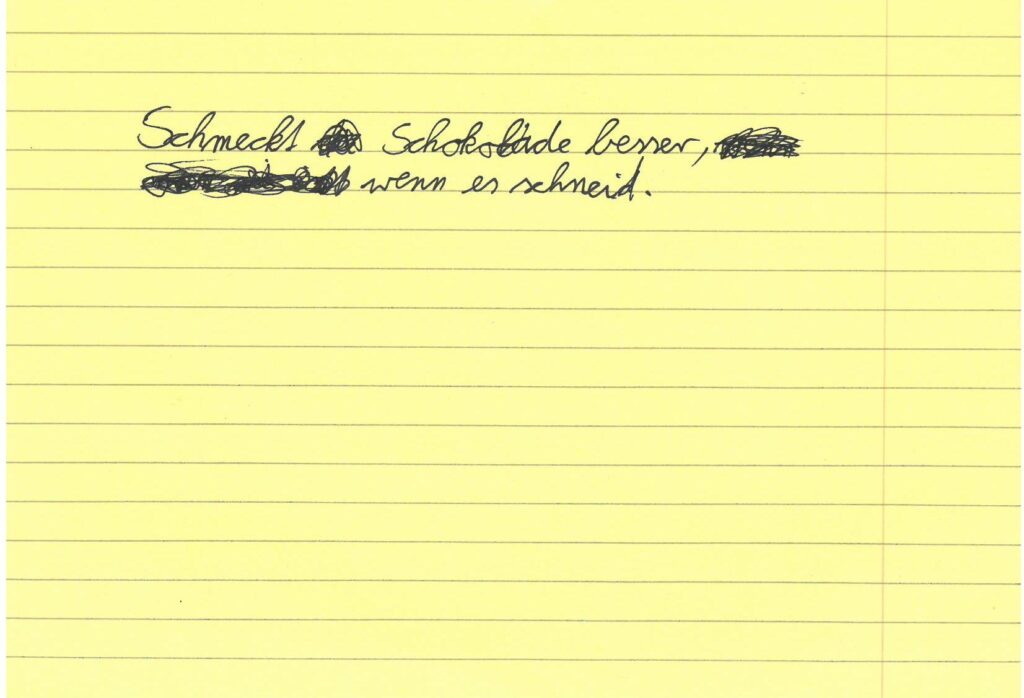 Schmeckt Schokolade besser,
wenn es schneid.